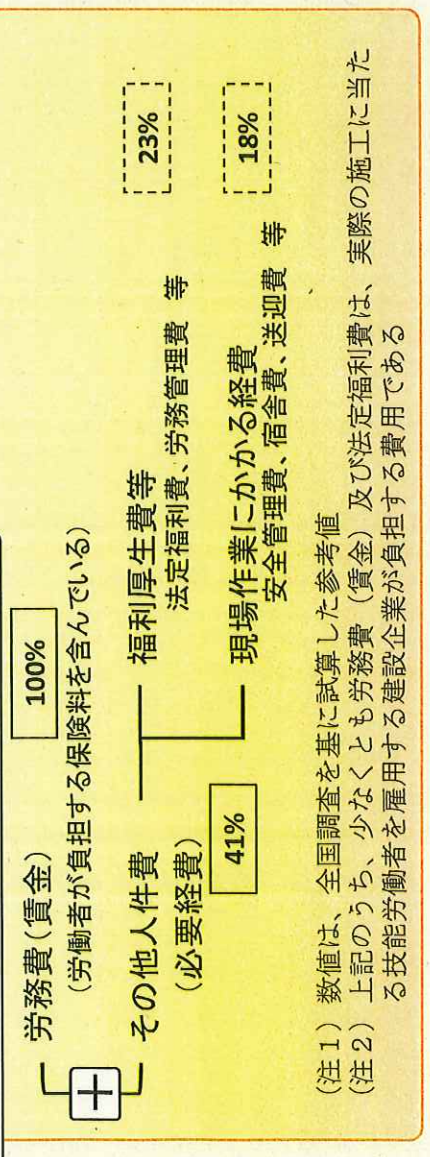 労務費(賃金)
100%
(労働者が負担する保険料を含んでいる)
＋
その他人件費
(必要経費)
41%
福利厚生費等
23%
法定福利費、労務管理費 等
現場作業にかかる経費
18%
安全管理費、宿舎費、送迎費 等
(注1) 数値は、全国調査を基に試算した参考値
(注2) 上記のうち、少なくとも労務費(賃金)及び法定福利費は、実際の施工に当た
る技能労働者を雇用する建設企業が負担する費用である